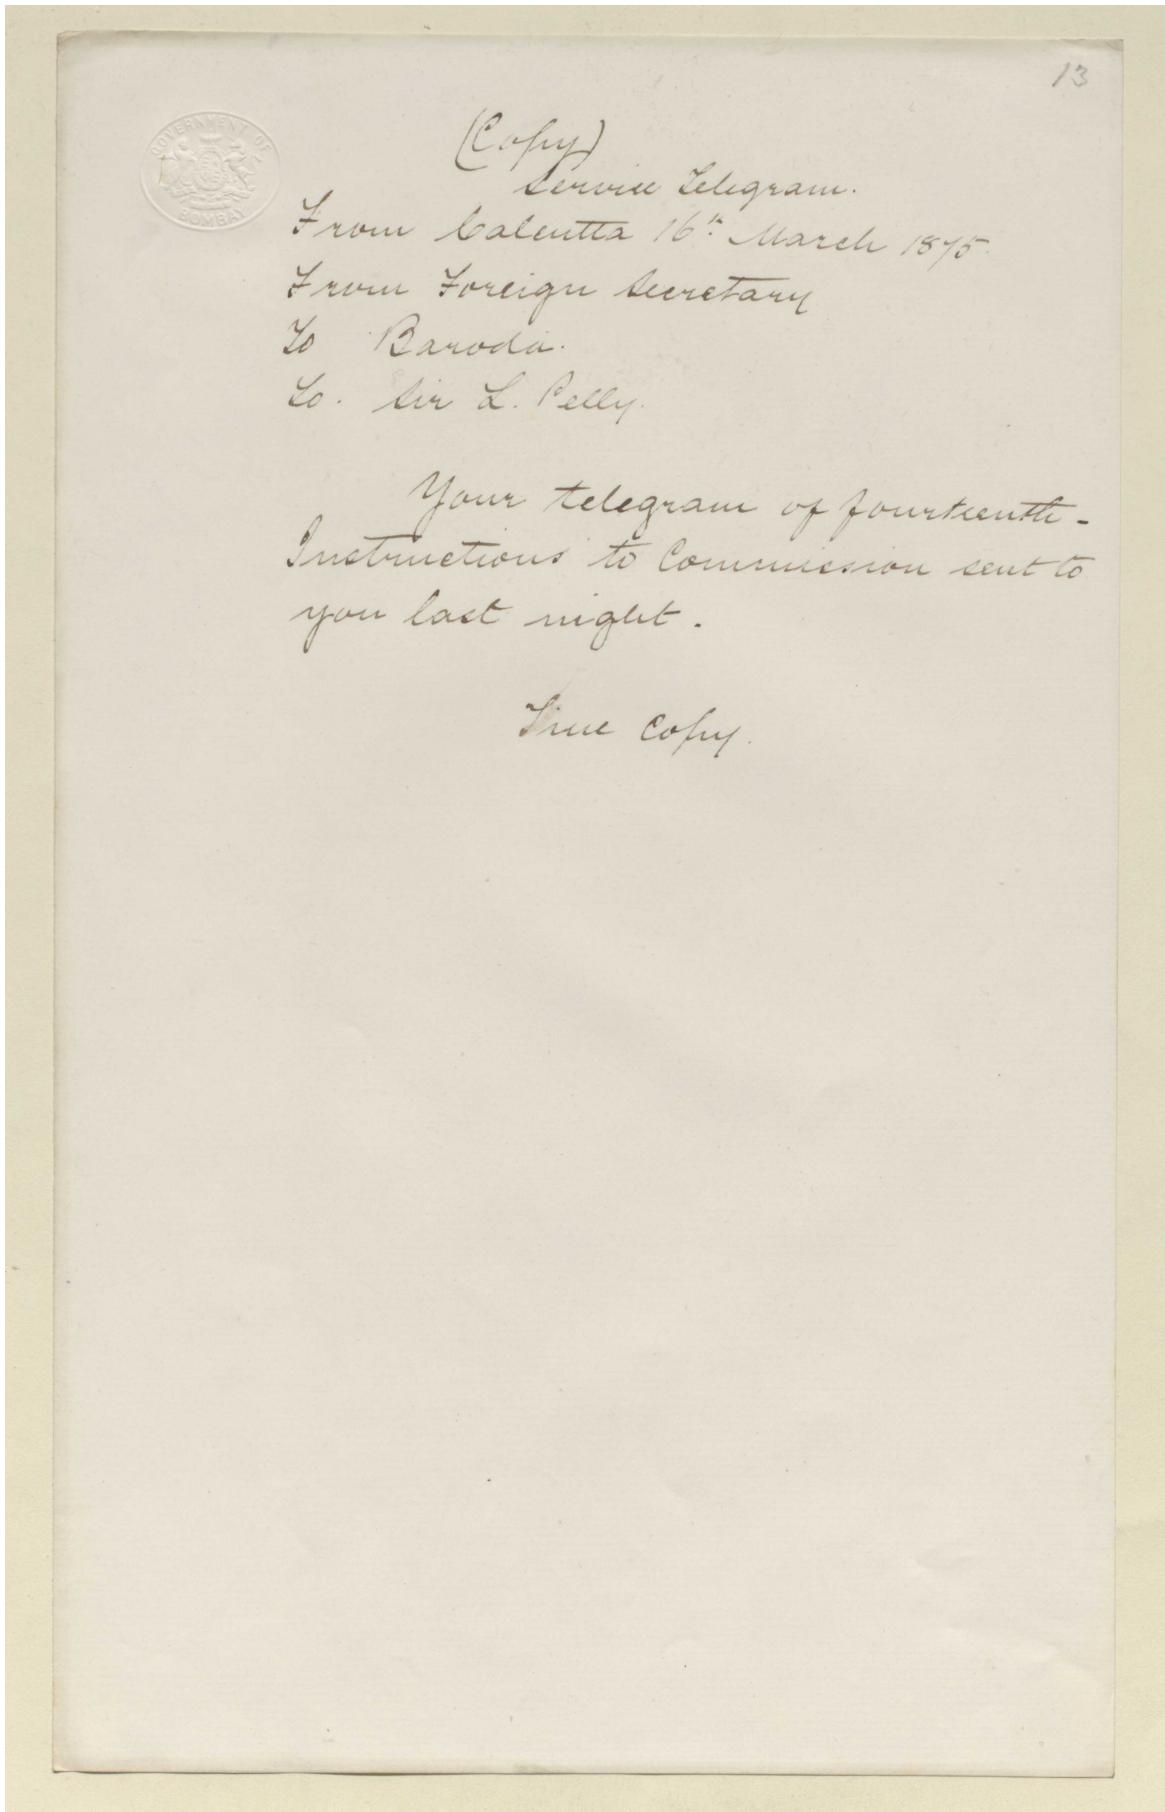 13
GOVERNMENT OF
BOMBAY
(Copy)
Service Telegram.
From Calcutta 16th March 1875.
From Foreign Secretary
To Baroda.
To. Sir L. Pelly.
Your telegram of fourteenth -
Instructions to Commission sent to
you last night.
True Copy.